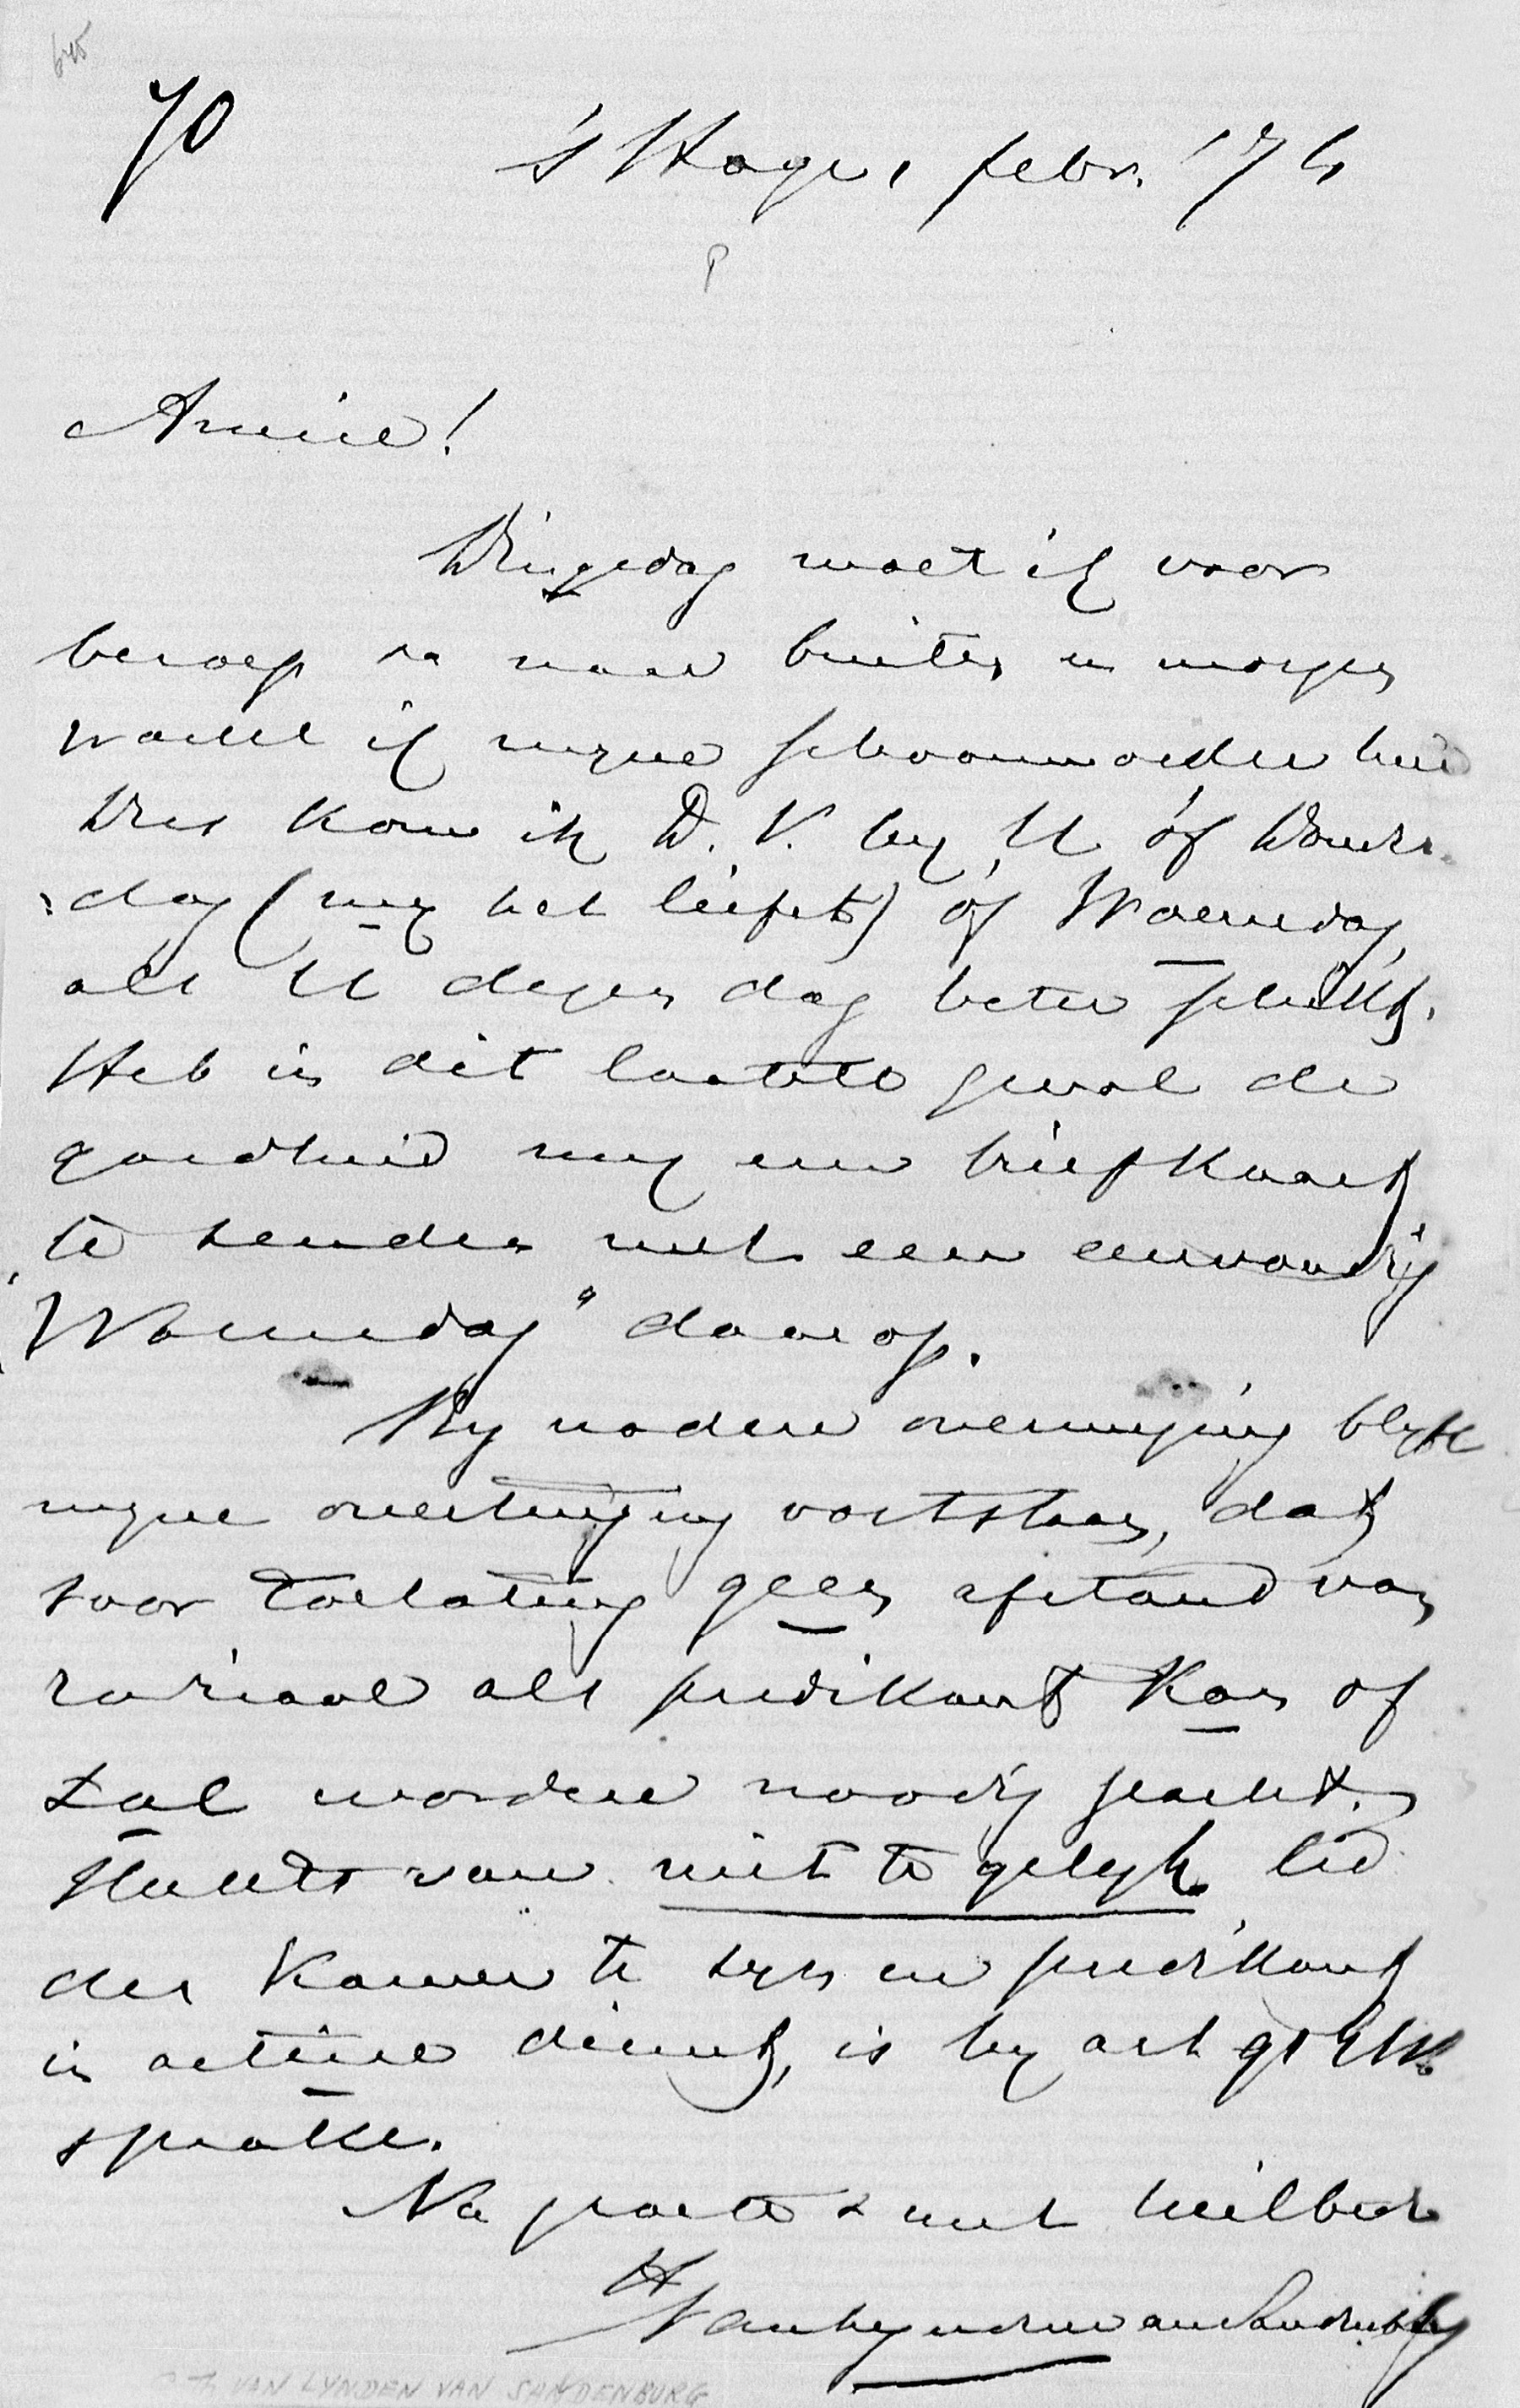 70
's Hage, febr. '74
Amice!
Dingsdag moet ik voor
beroep sa naar buiten en morgen
wacht ik myne schoonmoeder hier
Dus kom ik D. V. by U óf Donder-
:dag (my het liefst) óf Woensdag,
als U dezen dag beter schikt.
Heb in dit laatste geval de
goedheid my een briefkaart
te zenden met een eenvoudig
"Woensdag" daarop.
By nadere overweging blyft
myne overtuiging vaststaan, dat
voor toelating geen afstand van
radicaal als predikant kan of
zal worden noodig geacht.
Slechts van niet te gelyk lid
der Kamer te zyn en predikant
in active dienst, is by art 91 GW.
sprake.
Na groete & met heilbede
VanLyndenvanSandenburg
VAN LYNDEN VAN SANDENBURG